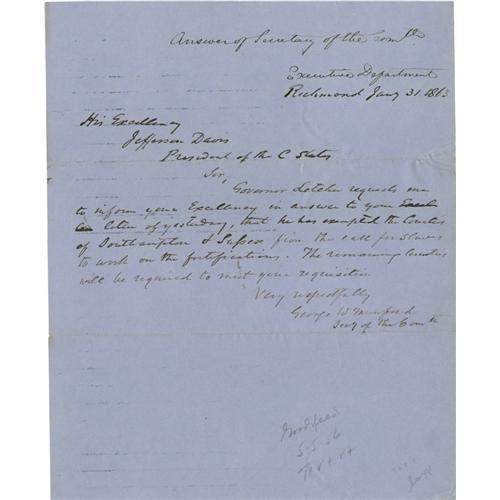 Answer of Secretary of the Comth
Executive Department
Richmond Jany 31. 1863
His Excellency
Jefferson Davis
President of the C States
Sir,
Governor Letcher requests me
to inform your Excellency in answer to your
letter of yesterday, that he has exempted the Counties
of Southampton & Sussex from the call for slaves
to work on the fortifications. The remaining Counties
will be required to meet your requisition
Very respectfully
George W Munford
Secy of the Comth
Goodspeed
5.5.56